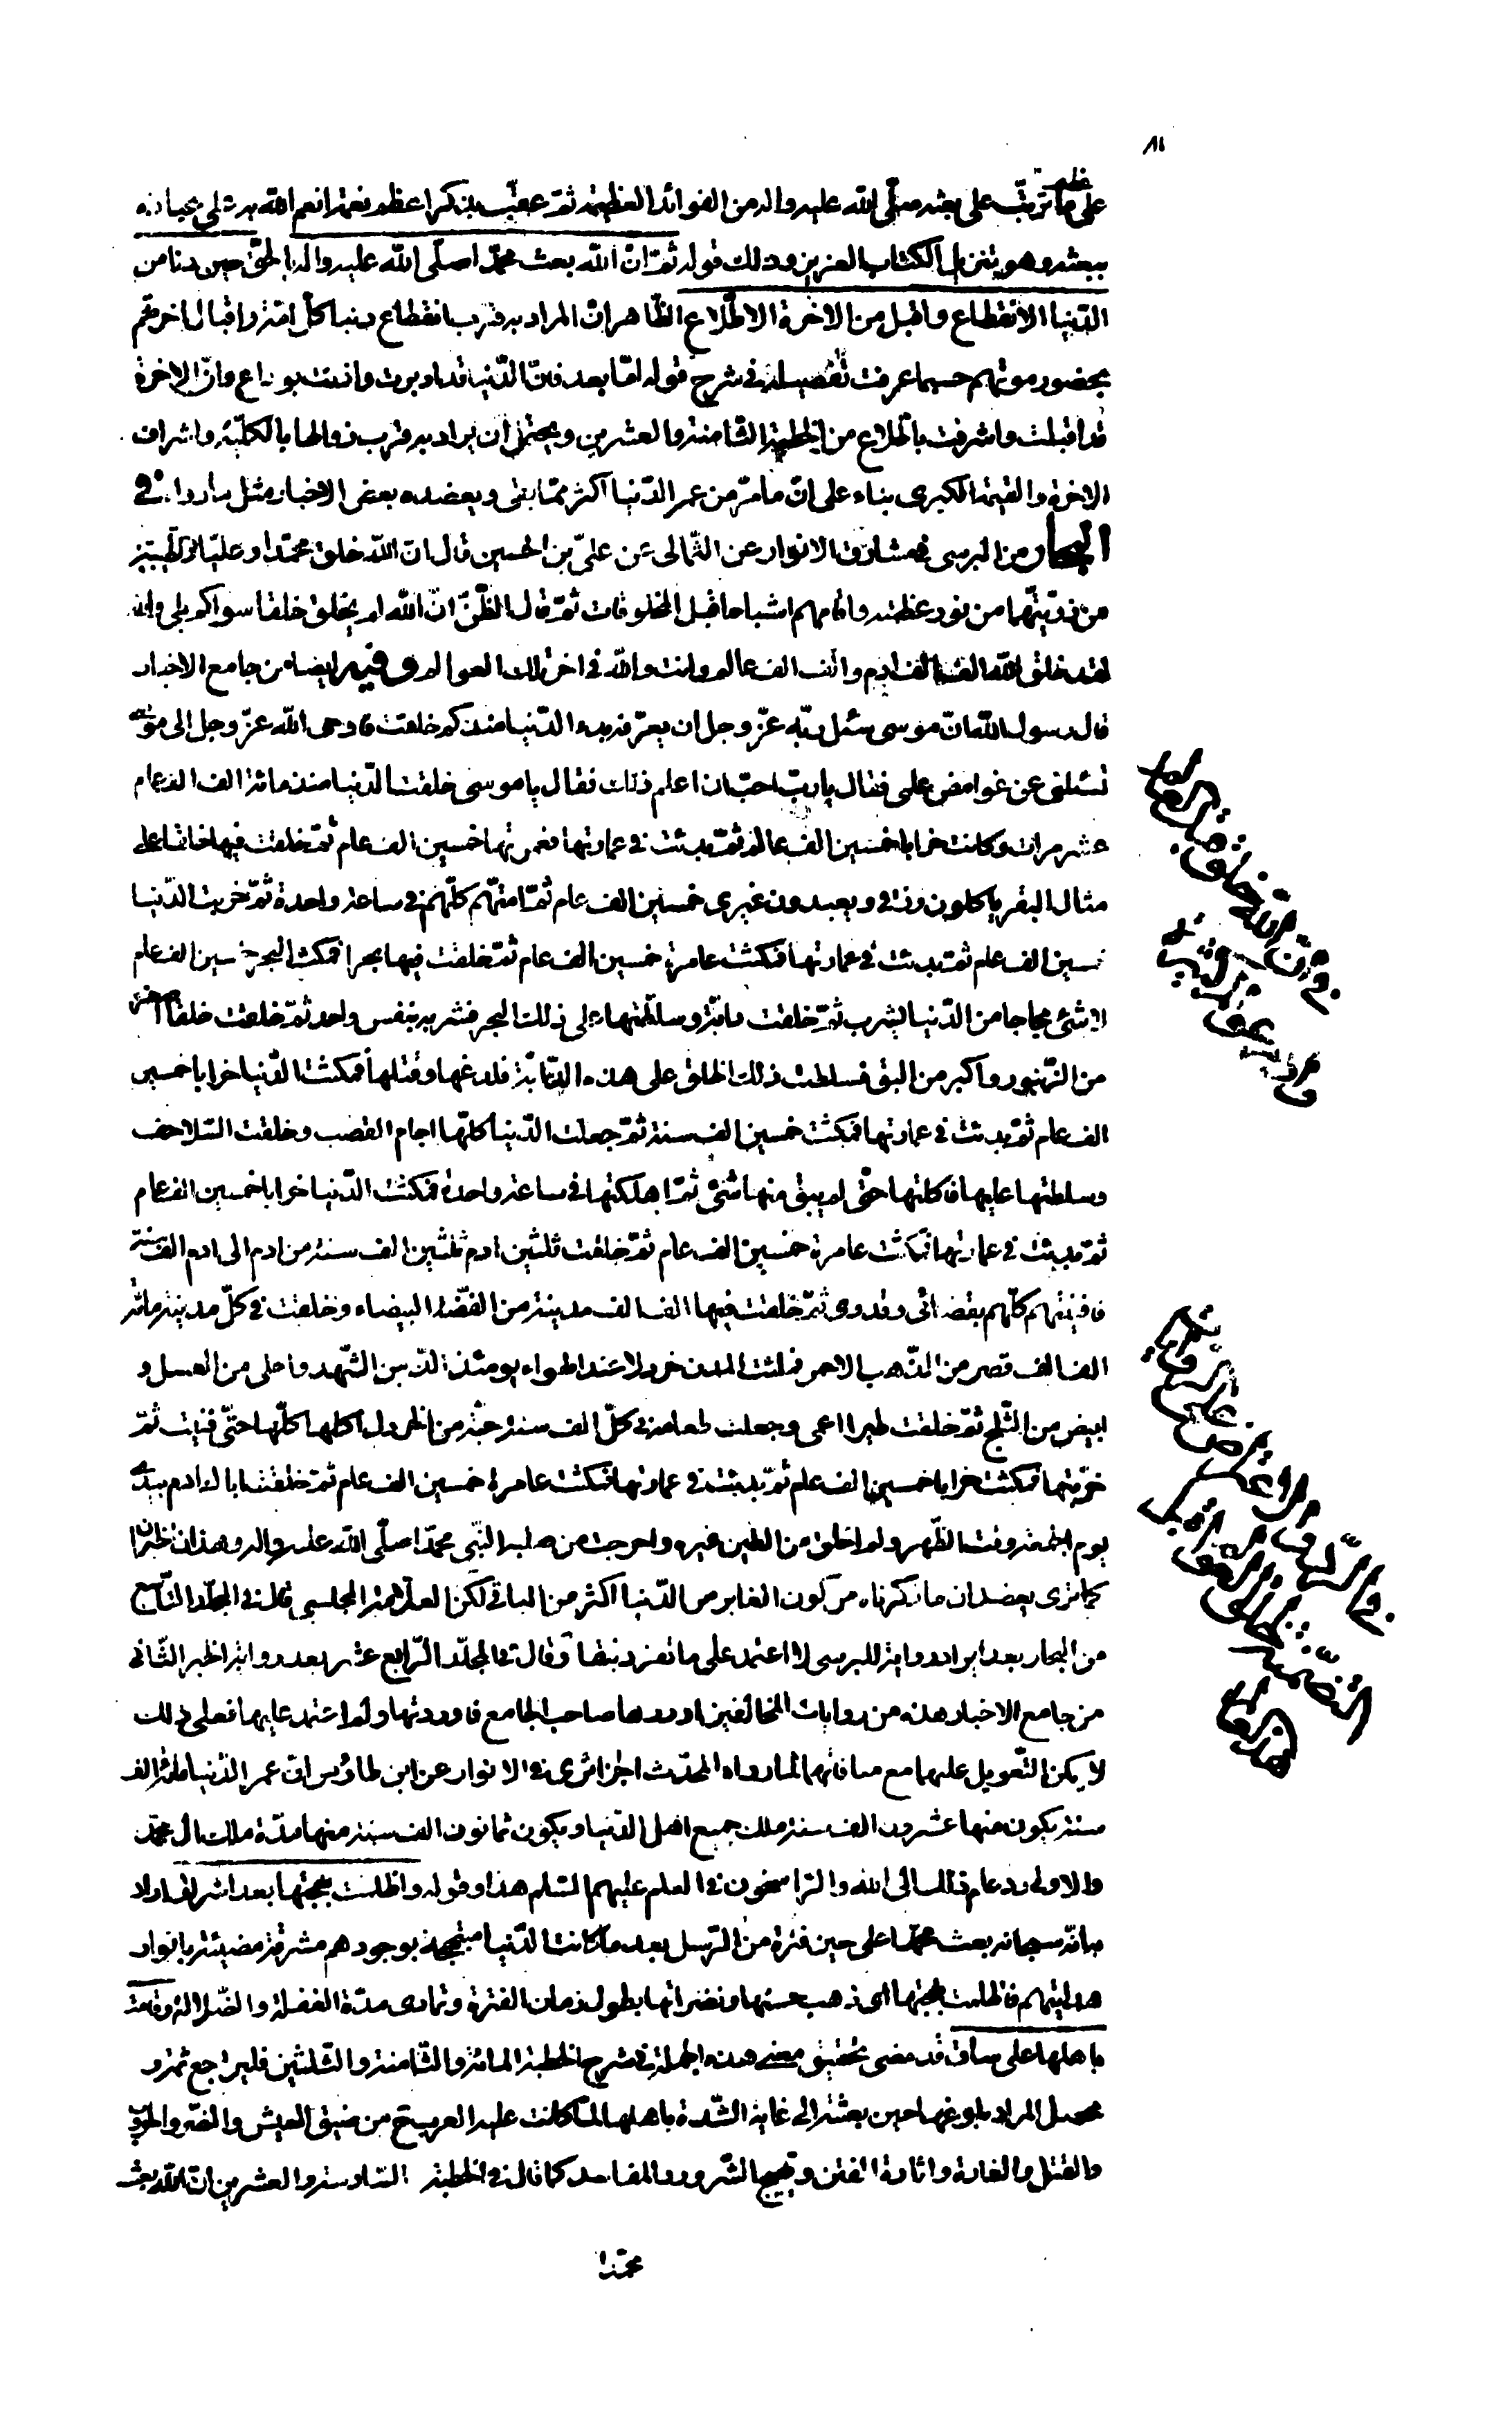 ٨١
على ما ترتّب على بعثه صلّى الله عليه وآله من الفوائد العظيمة ثمّ عقّب بذكر اعظم نعمة انعم الله به على عباده
ببعثه وهو تنزيل الكتاب العزيز وذلك قوله ثمّ انّ الله بعث محمّدا صلّى الله عليه وآله بالحقّ حين دنا من
الدّنيا الانقطاع واقبل من الاخرة الاطّلاع الظّاهر انّ المراد به قرب انقطاع دنيا كلّ امّة واقبال اخرتهم
بحضور موتهم حسبما عرفت تفصيله فى شرح قوله امّا بعد فانّ الدّنيا قد ادبرت واذنت بوداع وانّ الاخرة
قد اقبلت واشرفت باطّلاع من الخطبة الثّامنة والعشرين ويحتمل ان يراد به قرب زوالها بالكلّيّة واشراف
الاخرة والقيمة الكبرى بناء على انّ ما مرّ من عمر الدّنيا اكثر ممّا بقى ويعضده بعض الاخبار مثل ما رواه فى
البحار من البرسى فى مشارق الانوار عن الثّمالى عن علىّ بن الحسين قال انّ الله خلق محمّدا وعليّا والطّيّبين
من ذرّيّتهما من نور عظمته واقامهم اشباحا قبل المخلوقات ثمّ قال اتظنّ انّ الله لم يخلق خلقا سواكم بلى والله
لقد خلق الله الف الف ادم والف الف عالم وانت والله فى اخر تلك العوالم وفيه ايضا من جامع الاخبار
قال رسول الله انّ موسى سئل ربّه عزّ وجل ان يعرّفه بدء الدّنيا منذ كم خلقت فاوحى الله عزّ وجل الى موسى
تسئلنى عن غوامض علمى فقال يا ربّ احبّ ان اعلم ذلك فقال يا موسى خلقت الدّنيا منذ مائة الف الف عام
عشر مرات وكانت خرابا خمسين الف عام ثمّ بدئت فى عمارتها فعمرتها خمسين الف عام ثمّ خلقت فيها خلقا على
مثال البقر ياكلون رزقى ويعبدون غيرى خمسين الف عام ثمّ امتّهم كلّهم فى ساعة واحدة ثمّ خربت الدّنيا
خمسين الف عام ثمّ بدئت فى عمارتها فمكثت عامرة خمسين الف عام ثمّ خلقت فيها بحرا فمكث البحر خمسين الف عام
لا شئ مجاجا من الدّنيا يشرب ثمّ خلقت دابّة وسلّطتها على ذلك البحر فشربه بنفس واحد ثمّ خلقت خلقا اصغر
من الزّنبور واكبر من البق فسلطت ذلك الخلق على هذه الدّابّة فلدغها وقتلها فمكثت الدّنيا خرابا خمسين
الف عام ثمّ بدئت فى عمارتها فمكثت خمسين الف سنة ثمّ جعلت الدّنيا كلّها اجام القصب وخلقت السّلاحف
وسلطتها عليها فاكلتها حتّى لم يبق منها شئ ثمّ اهلكتها فى ساعة واحدة فمكثت الدّنيا خرابا خمسين الف عام
ثمّ بدئت فى عمارتها فمكثت عامرة خمسين الف عام ثمّ خلقت ثلثين ادم ثلثين الف سنة من ادم الى ادم الف سنة
فافنيتهم كلّهم بقضائى وقدرى ثمّ خلقت فيها الف الف مدينة من الفضّة البيضاء وخلقت فى كلّ مدينة مائة
الف الف قصر من الذّهب الاحمر فملئت المدن خردلا عند الهواء يومئذ الذّ من الشّهد واحلى من العسل و
ابيض من الثّلج ثمّ خلقت طيرا اعمى وجعلت طعامه فى كلّ الف سنة حبّة من الخردل اكلها كلّها حتّى فنيت ثمّ
خرّبتها فمكثت خرابا خمسين الف عام ثمّ بدئت فى عمارتها فمكثت عامرة خمسين الف عام ثمّ خلقت اباك ادم بيدى
يوم الجمعة وقت الظّهر ولم اخلق من الطين غيره واخرجت من صلبه النّبى محمّدا صلّى الله عليه وآله وهذان الخبران
كما ترى يعضدان ما ذكرناه من كون الغابر من الدّنيا اكثر من الباقى لكن العلّامة المجلسى قال فى المجلّد التّاسع
من البحار بعد ايراد رواية للبرسى لا اعتمد على ما تفرد بنقله وقال فى المجلّد الرّابع عشر بعد رواية الخبر الثّانى
من جامع الاخبار هذه من روايات المخالفين اوردها صاحب الجامع فاوردتها ولم اعتمد عليها فعلى ذلك
لا يمكن التّعويل عليها مع منافاتهما لما رواه المحدّث الجزائرى فى الانوار عن ابن طاوس انّ عمر الدّنيا مائة الف
سنة يكون منها عشرون الف سنة ملك جميع اهل الدّنيا ويكون ثمانون الف سنة منها مدّة ملك ال محمّد
والاولى رد علم ذلك الى الله والرّاسخون فى العلم عليهم السّلم هذا وقوله واظلمت بهجتها بعد اشراق اراد
به انّه سبحانه بعث محمّدا على حين فترة من الرّسل بعد ما كانت الدّنيا مبتهجة بوجودهم مشرقة مضيئة بانوار
هدايتهم فاظلمت بهجتها اى ذهب حسنها ونضراتها بطول زمان الفترة وتمادى مدّة الغفلة والضّلالة وقامت
باهلها على ساق قد مضى تحقيق معنى هذه الجملة فى شرح الخطبة المائة والثّامنة والثّلثين فليراجع ثمّة و
محصل المراد بلوغها حين بعثته الى غاية الشّدة باهلها لما كانت عليه العرب ح من ضيق العيش والضّر والحرب
والقتل والغارة واثارة الفتن وتهييج الشّرور والمفاسد كما قال فى الخطبة السّادسة والعشرين انّ الله بعث
محمّدا